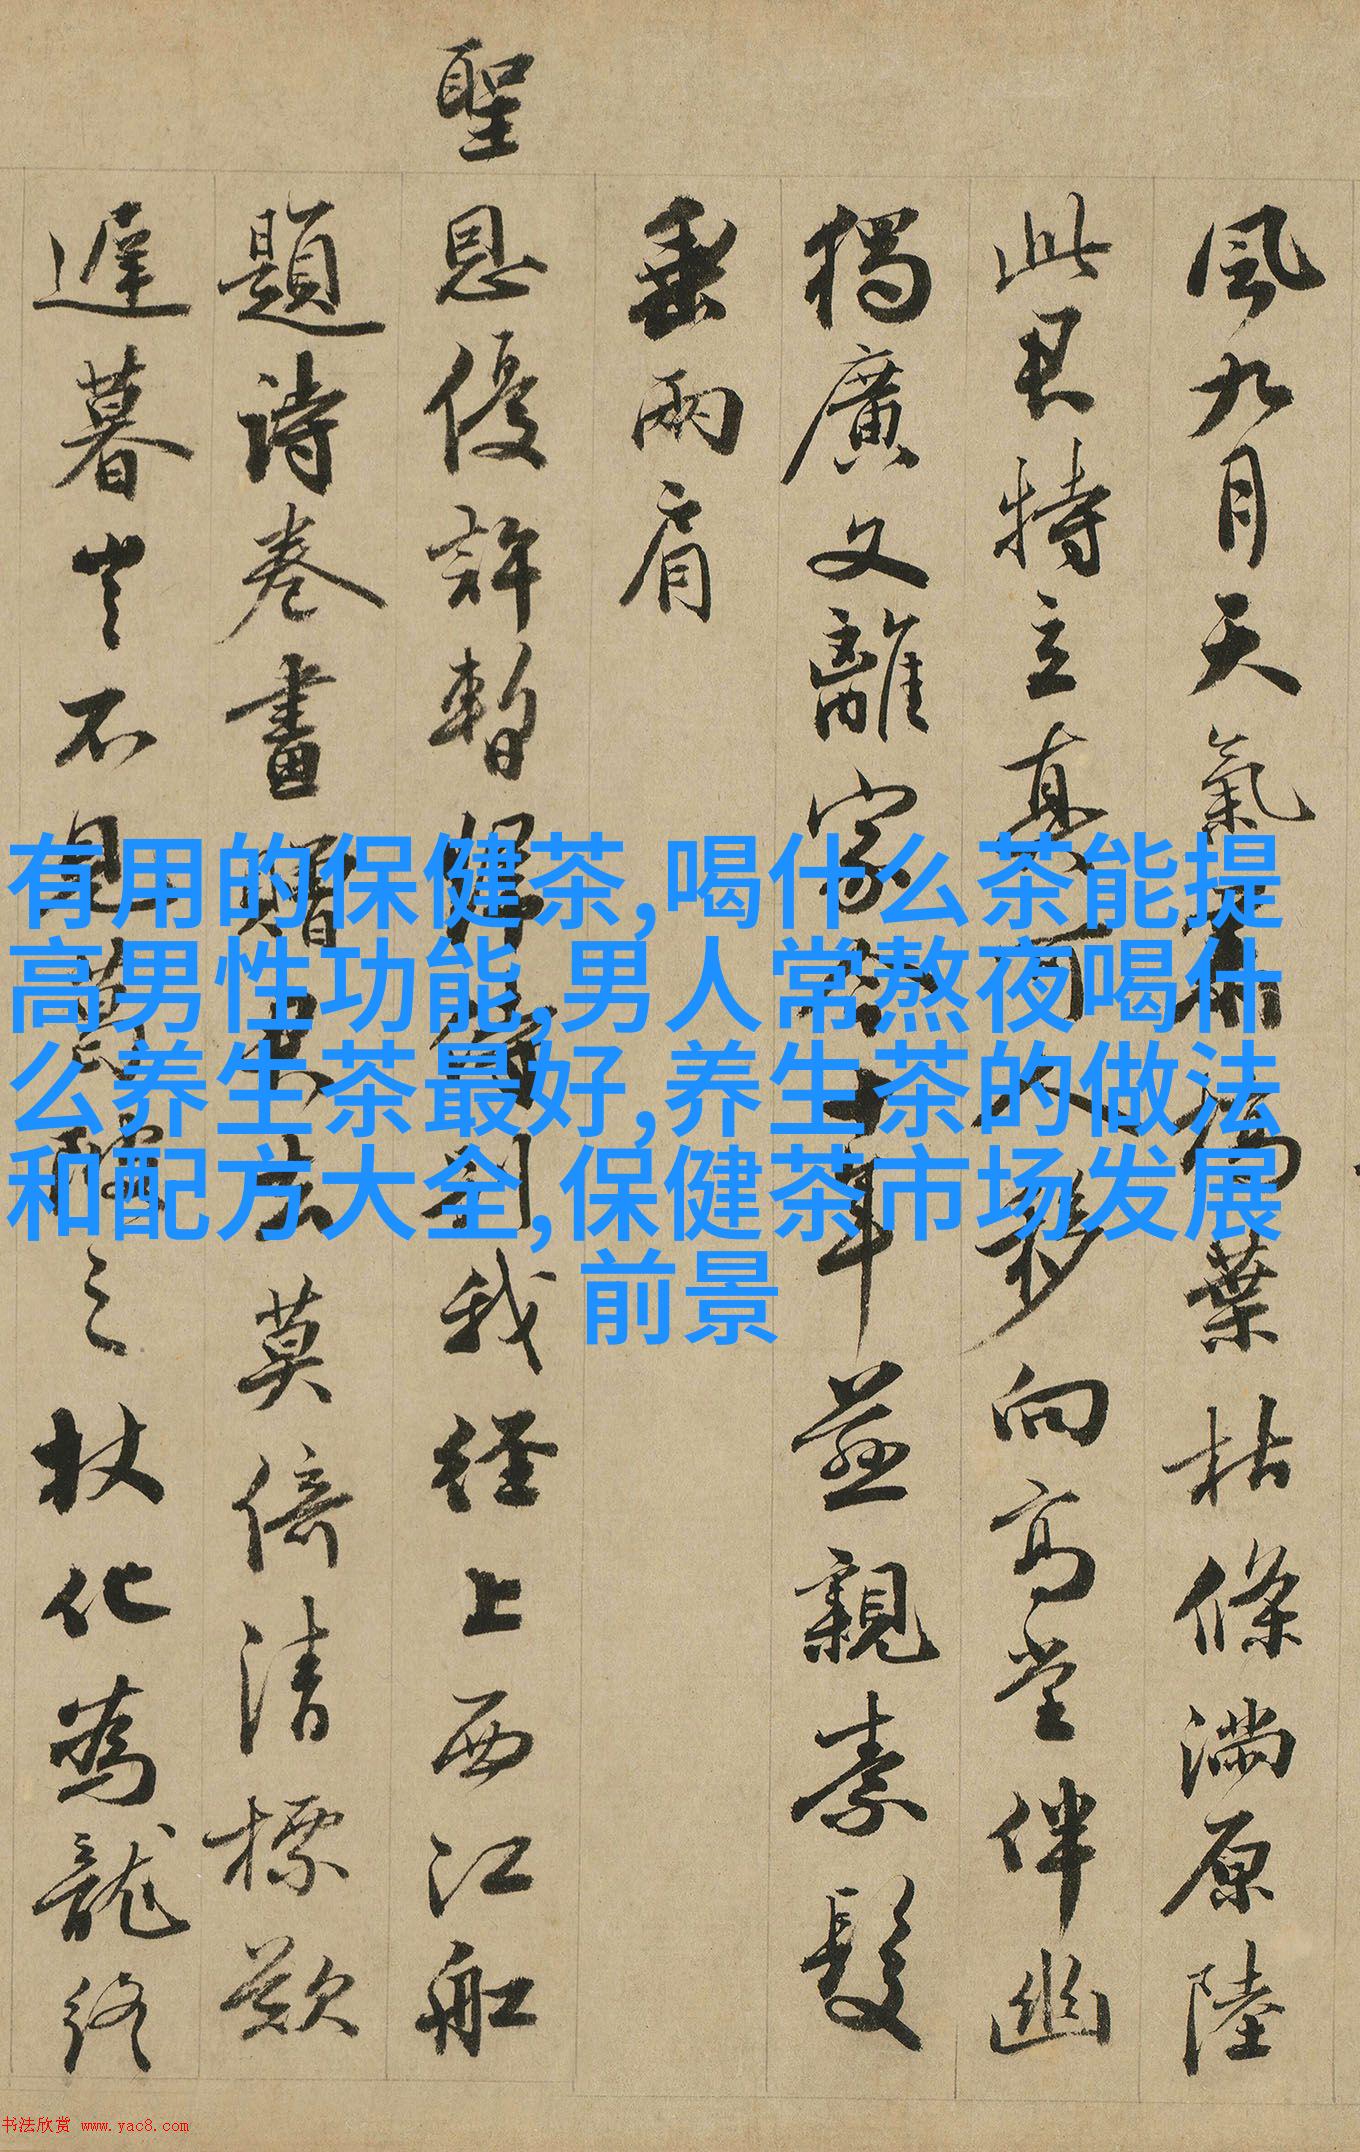 風九月天氣槁葉枯條滿原陸
此君特立真可人移向高堂伴幽
獨廣文離家十年慈親素髮
垂兩肩
聖恩優許暫歸省別我經上西江船
題詩卷畫贈君去莫倍清標歎
遲暮豈不見葛陂之杖化為龍終
有用的保健茶,喝什么茶能提
高男性功能,男人常熬夜喝什
么养生茶最好,养生茶的做法
和配方大全,保健茶市场发展
前景
书法欣赏 www.yac8.com